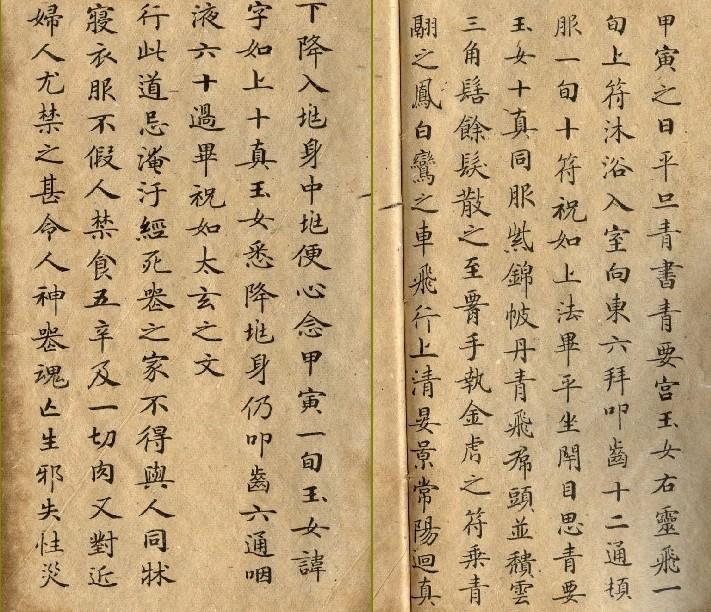 甲寅之日平旦青書青要宮玉女右靈飛一
旬上符沐浴入室向東六拜叩齒十二通頓
服一旬十符祝如上法畢平坐閇目思青要
玉女十真同服紫錦帔丹青飛帬頭並積雲
三角髻餘髮散之至腎手執金虎之符乗青
翮之鳳白鸞之車飛行上清晏景常陽迴真
下降入㘯身中㘯便心念甲寅一旬玉女諱
字如上十真玉女悉降㘯身仍叩齒六通咽
液六十過畢祝如太玄之文
行此道忌淹汙經死䘮之家不得與人同牀
寢衣服不假人禁食五辛及一切肉又對近
婦人尤禁之甚令人神䘮魂亡生邪失性災